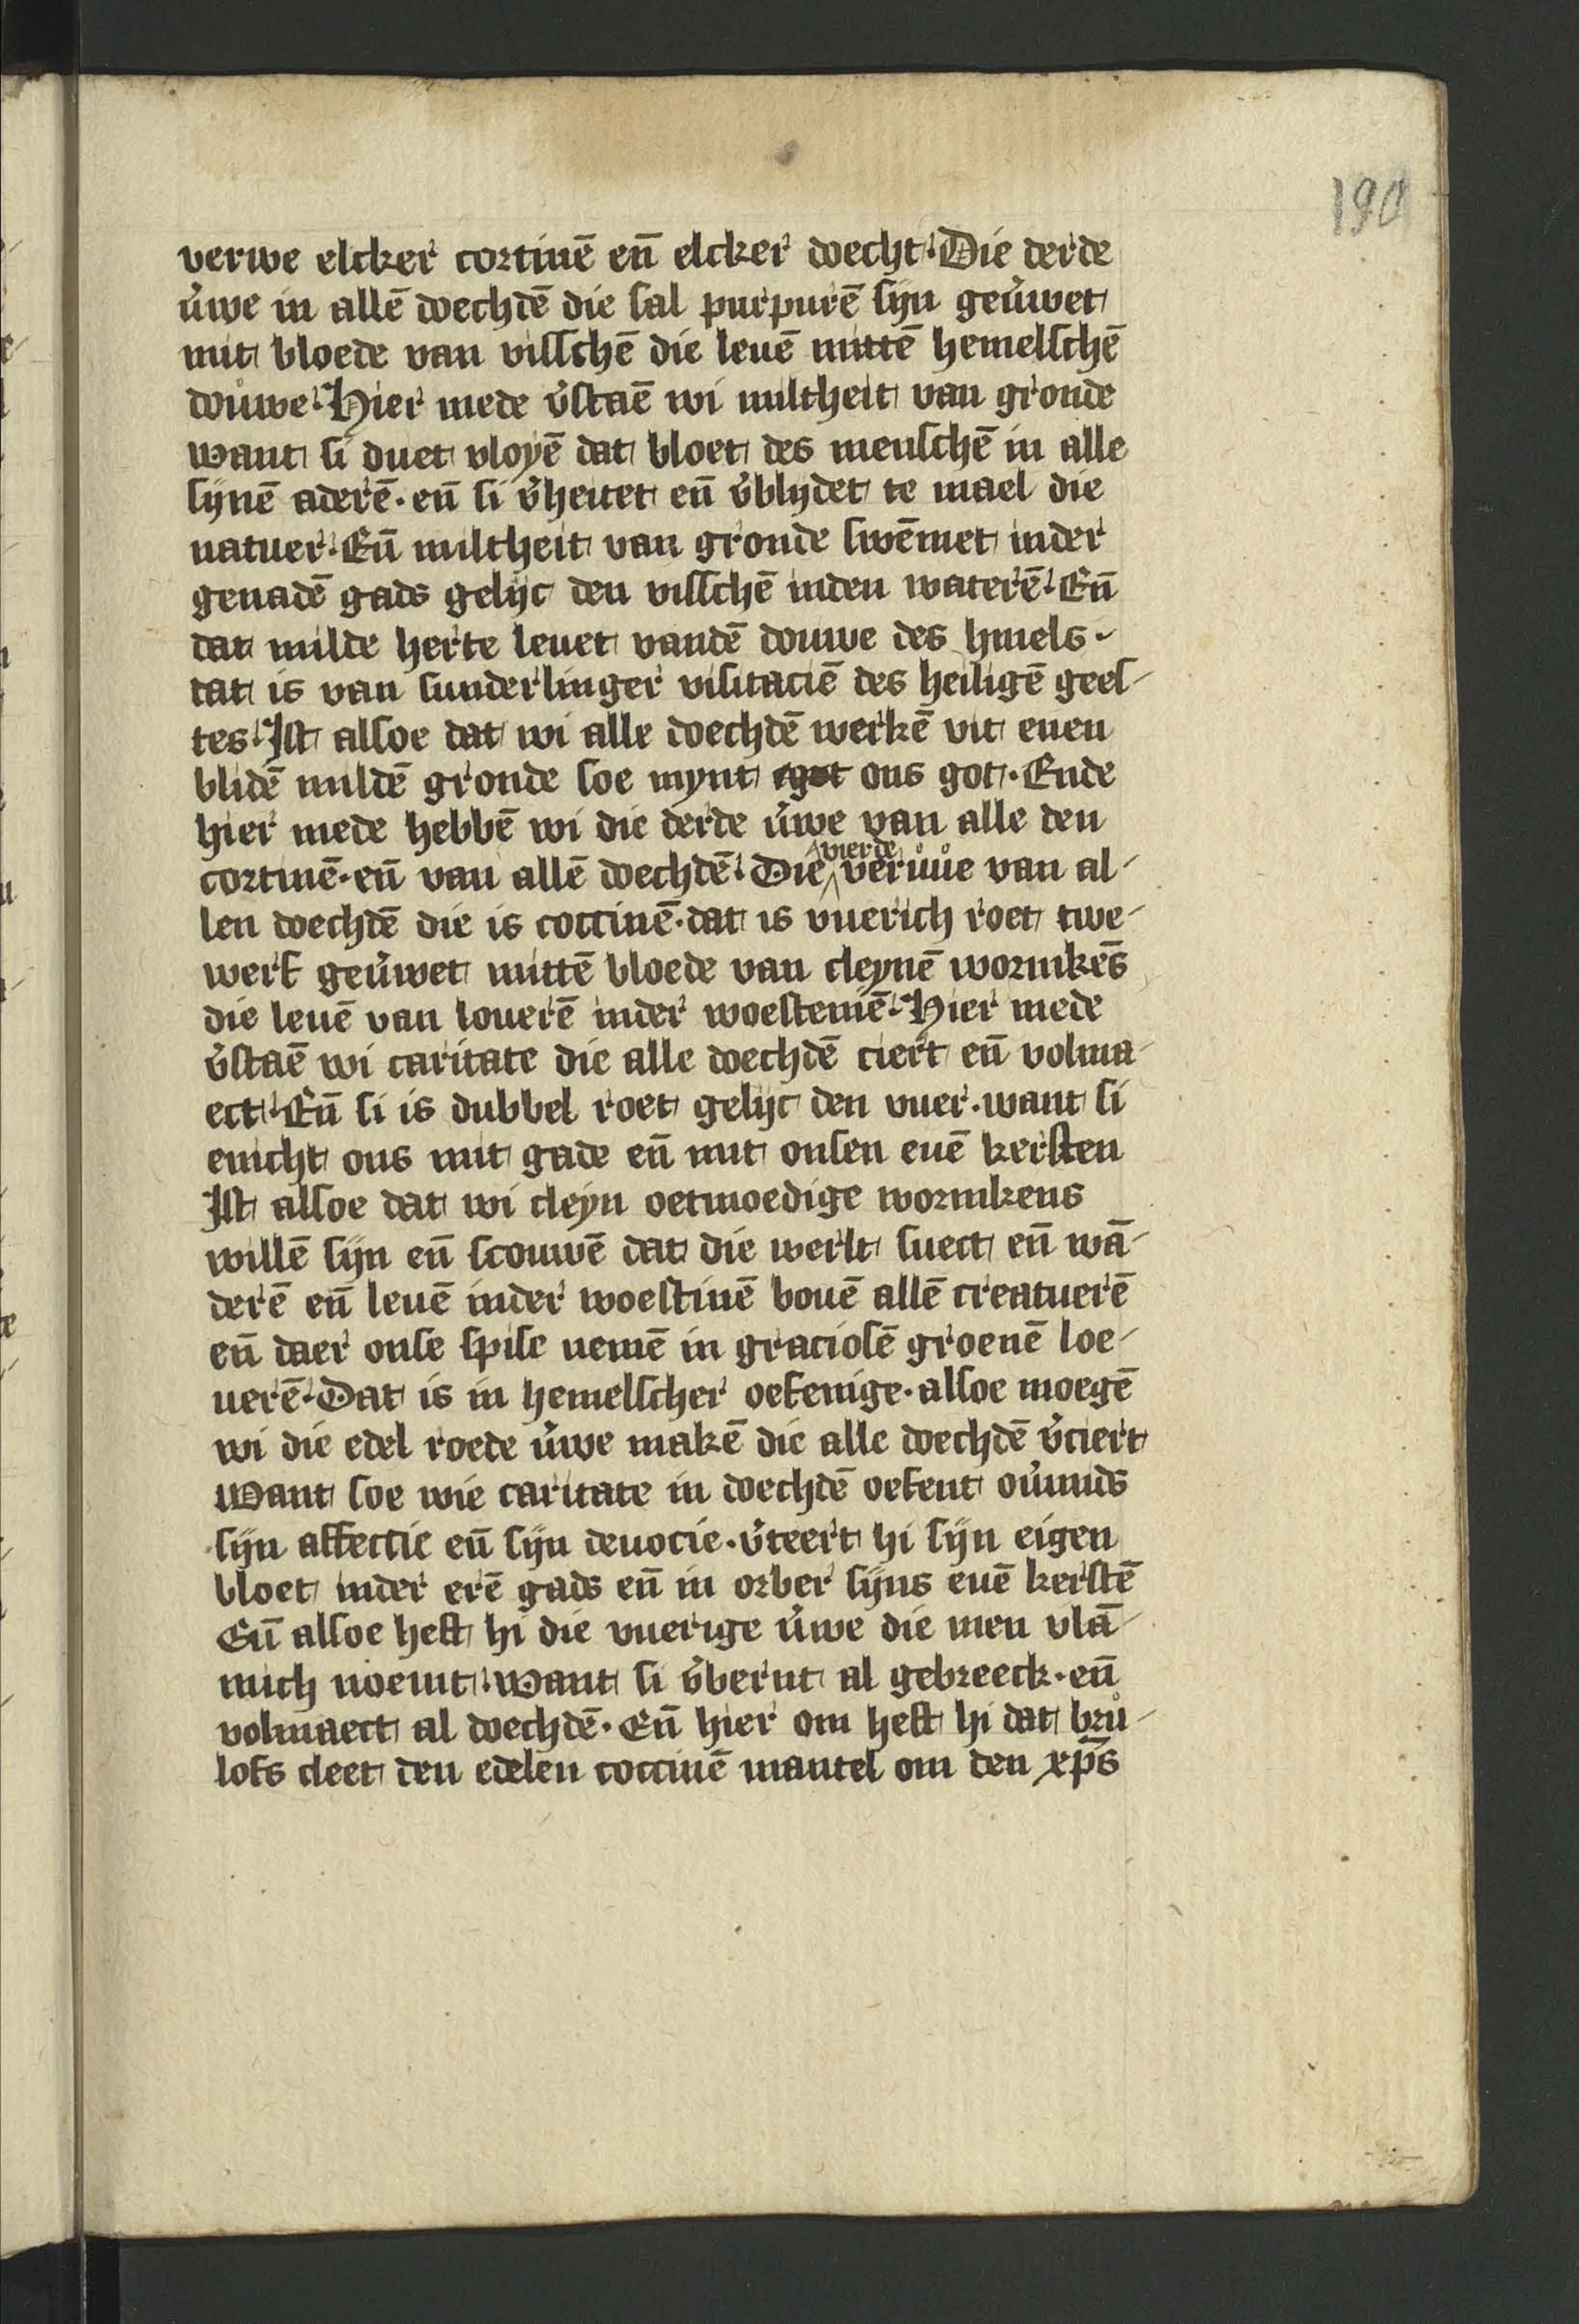 190
verwe elcker cortinē en̄ elcker doecht. Die derde
v̓we in allē doechdē die sal purpurē sijn gev̓wet
mit bloede van visschē die leuē mittē hemelschē
dou̓we. Hier mede v̓staē wi miltheit van gronde
want si duet vloyē dat bloet des menschē in alle
sijnē aderē. en̄ si v̓heuet en̄ v̓blydet te mael die
natuer. En̄ miltheit van gronde swēmet inder
genadē gads gelijc den visschē inden waterē. En̄
dat milde herte leuet vandē douwe des hīmels.
dat is van sunderlinger visitaciē des heiligē gees-
tes. Ist alsoe dat wi alle doechdē werkē vit enen
blidē mildē gronde soe mynt ons got. Ende
hier mede hebbē wi die derde v̓we van alle den
cortinē. en̄ van allē doechdē. Die vierde veruůe van al-
len doechdē die is coccinē. dat is vuerich roet twe-
werf gev̓wet mittē bloede van cleynē wormkēs
die leuē van louerē inder woestenīē. Hier mede
v̓staē wi caritate die alle doechdē ciert en̄ volma-
ect. En̄ si is dubbel roet gelijc den vuer. want si
enicht ons mit gade en̄ mit onsen euē kersten
Ist alsoe dat wi cleyn oetmoedige wormkens
willē sijn en̄ scouwē dat die werlt suect en̄ wā-
derē en̄ leuē inder woestinē bouē allē creatuerē
en̄ daer onse spise nemē in graciosē groenē loe-
uerē. Dat is in hemelscher oefenige. alsoe moegē
wi die edel roede v̓we makē die alle doechdē v̓ciert
Want soe wie caritate in doechdē oefent ov̓mids
sijn affectie en̄ sijn deuocie. v̓teert hi sijn eigen
bloet inder erē gads en̄ in orber sijns euē kerstē
En̄ alsoe heft hi die vuerige v̓we die men vlā-
mich noemt. want si v̓bernt al gebreeck. en̄
volmaect al doechdē. En̄ hier om heft hi dat brů-
lofs cleet den edelen coccinē mantel om den xp̄s